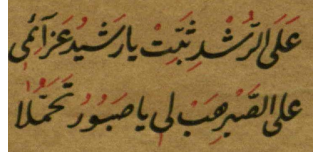 عَلَى الرُّشْدِ ثَبِّتْ يَا رَشِيدُ عَزَآئِمِى
عَلَى الصَّبْرِ هَبْ لِى يَا صَبُورُ تَحَمُّلَا